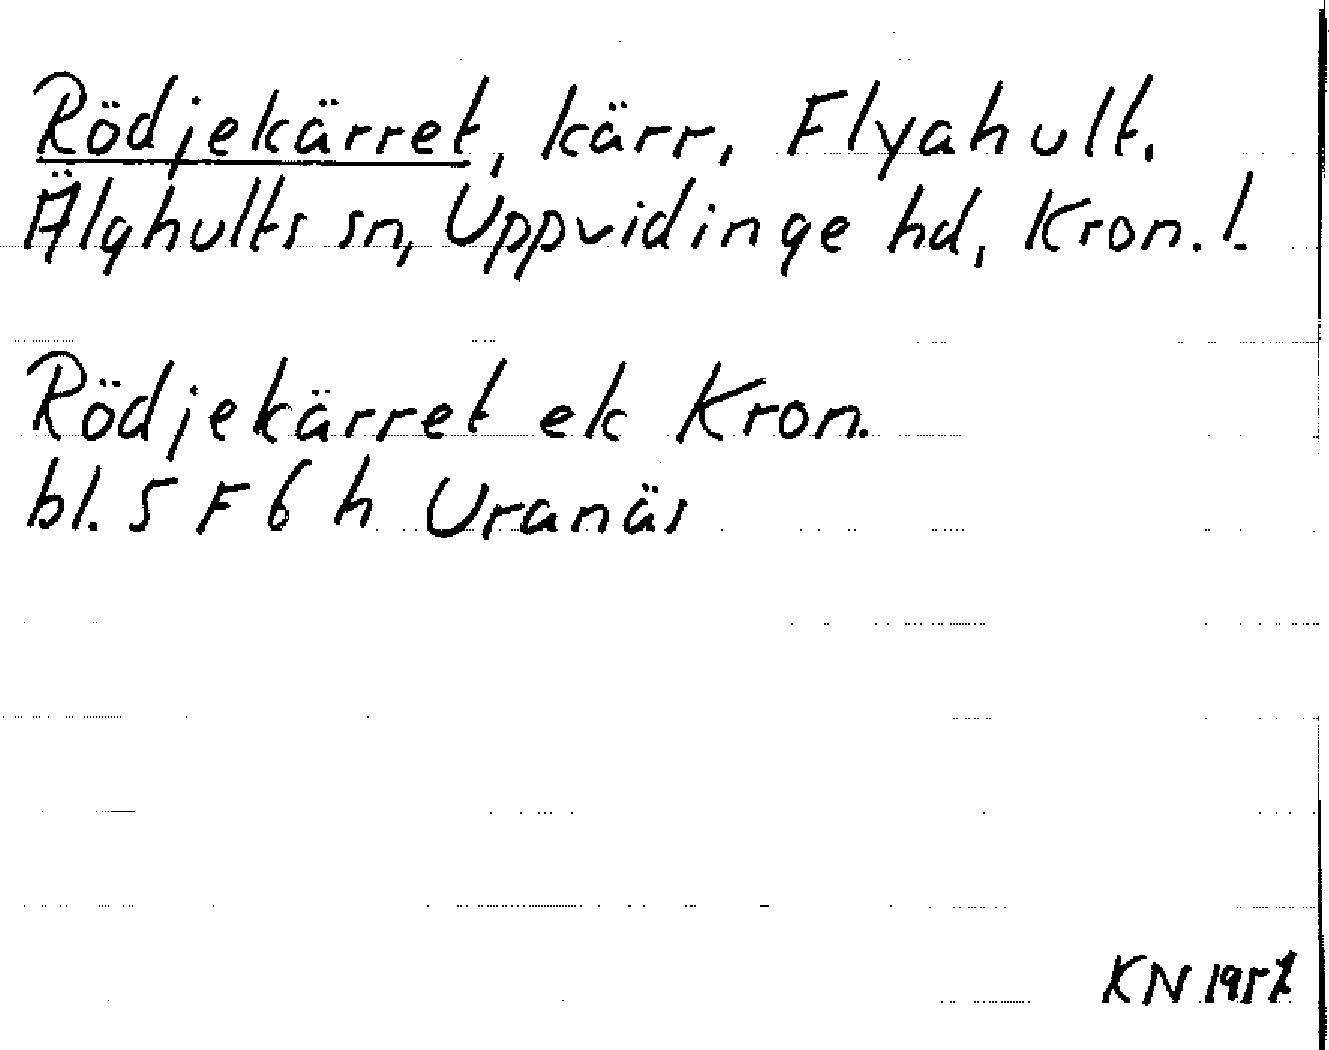 Rödjekärret, kärr, Flyahult.
Älghults sn, Uppvidinge hd, Kron. l.
Rödjekärret ek Kron.
bl. 5 F 6 h Uranäs
KN 1957